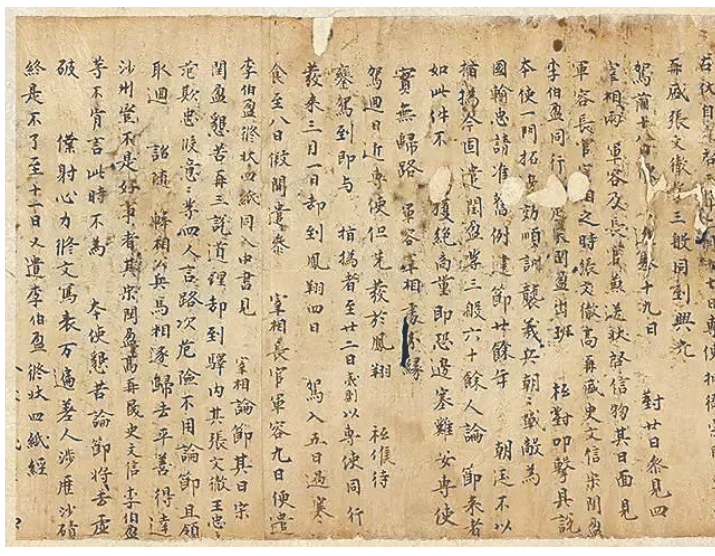 右伏自光啟三年二月十七日專使押衙宋閏
再盛張文徹等三般同到興元
駕前十八日 十九日 對廿日參見四
宰相兩軍容及長官兼送狀啟信物其日面見
軍容長官宰相之時張文徹高再盛史文信宋閏盈
李伯盈同行 宋閏盈出班 祗對叩擊具說
本使一門拓邊效順訓襲義兵朝朝戰敵為
國輸忠請准舊例建節廿餘年 朝廷不以
指撝今因遣閏盈等三般六十餘人論 節來者
如此件不 獲絕商量即恐邊塞難安專使
實無歸路 軍容宰相處分緣
駕迴日近專使但先發於鳳翔 祗候待
鑾駕到即與 指撝者至廿二日夷則以專使同行
發來三月一日却到鳳翔四日 駕入五日遇寒
食至八日假開遣參 宰相長官軍容九日便遣
李伯盈修狀四紙同入中書見 宰相論節其日宋
閏盈懇苦再三說道理却到驛內其張文徹王忠忠
范欺忠段意意等四人言路次危險不用論節且領
取迴 詔隨韓相公兵馬相逐歸去平善得達
沙州豈不是好事者其宋閏盈高再晟史文信李伯盈
等不肯言此時不為 本使懇苦論節將去虛
破 僕射心力修文寫表万遍差人涉歷沙磧
終是不了至十一日又遣李伯盈修狀四紙經